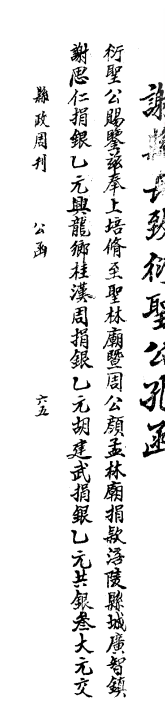 謝縣長致衍聖公孔函
衍聖公賜鑒茲奉上培脩至聖林廟暨周公顏孟林廟捐款涪陵縣城廣智鎮
謝思仁捐銀乙元興龍鄉桂漢周捐銀乙元胡建武捐銀乙元共銀叁大元交
縣政周刊 公函 六五